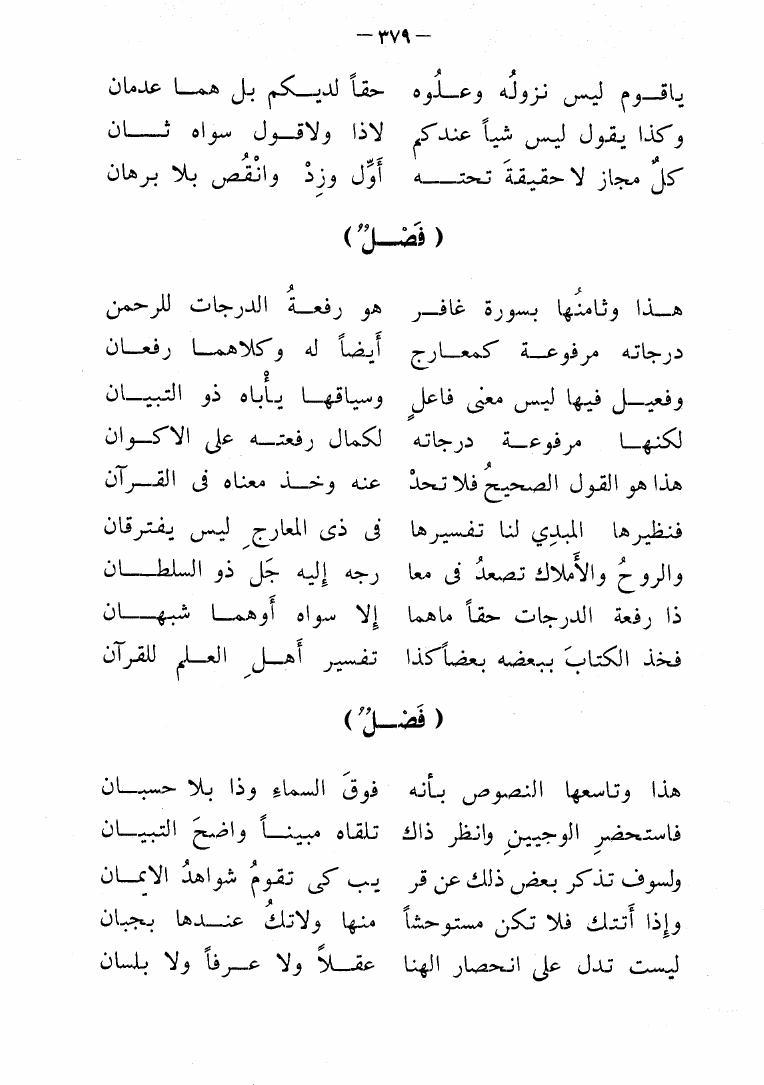 — ٣٧٩ —
ياقوم ليس نزولُه وعلُوه حقاً لديكم بل هما عدمان
وكذا يقول ليس شيأ عندكم لاذا ولاقول سواه ثان
كلٌ مجاز لا حقيقةَ تحته أوِّل وزِدْ وانْقُص بلا برهان
( فَصْلٌ )
هذا وثامنُها بسورة غافر هو رفعةُ الدرجات للرحمن
درجاته مرفوعة كمعارج أيضاً له وكلاهما رفعان
وفعيل فيها ليس معنى فاعلٍ وسياقها يأباه ذو التبيان
لكنها مرفوعة درجاته لكمال رفعته على الاكوان
هذا هو القول الصحيحُ فلا تحدْ عنه وخذ معناه فى القرآن
فنظيرها المبدي لنا تفسيرها فى ذى المعارجِ ليس يفترقان
والروحُ والأملاك تصعدُ فى معا رجه إليه جَل ذو السلطان
ذا رفعة الدرجات حقاً ماهما إلا سواه أوهما شبهان
فخذ الكتابَ ببعضه بعضاً كذا تفسير أهلِ العلم للقرآن
( فَصْلٌ )
هذا وتاسعها النصوص بأنه فوقَ السماءِ وذا بلا حسبان
فاستحضرِ الوحيينِ وانظر ذاك تلقاه مبيناً واضحَ التبيان
ولسوف تذكر بعض ذلك عن قر يب كى تقومُ شواهدُ الايمان
وإذا أتتك فلا تكن مستوحشاً منها ولاتكُ عندها بجبان
ليست تدل على انحصار الهنا عقلاً ولا عرفاً ولا بلسان